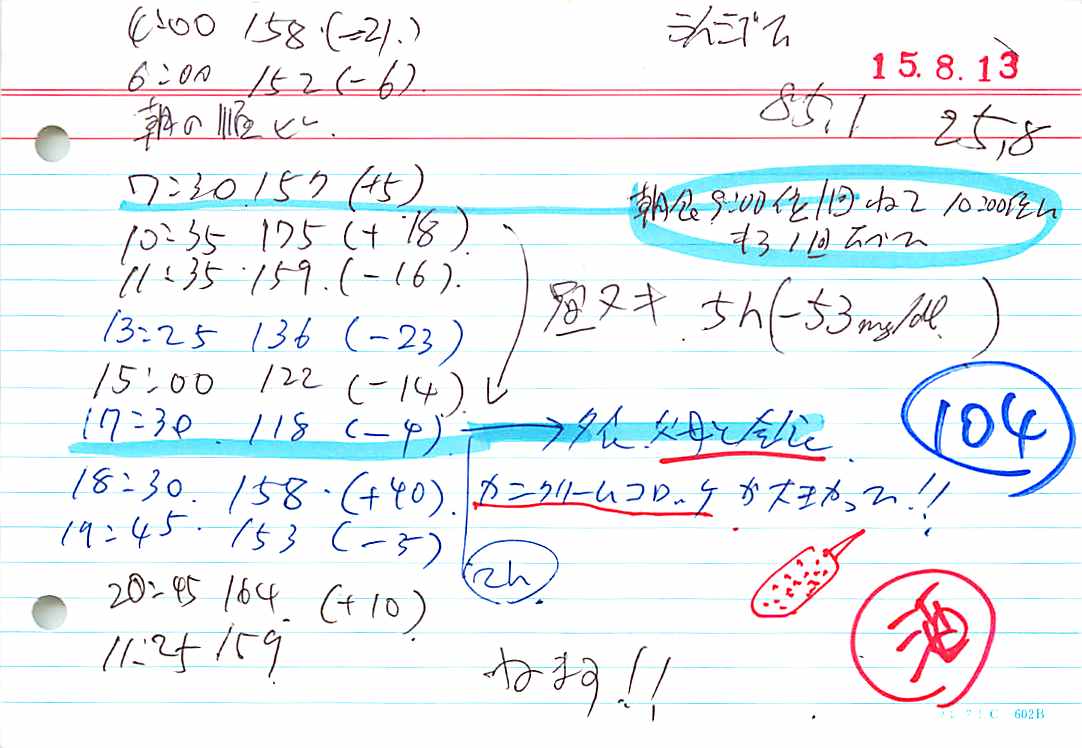 4:00 158 (-21)
15.8.13
6:00 152 (-6)
85,1 25,8
朝の
7:30 157 (+5)
朝食9:00に1回ねて 10:00に
もう1回たべた
10:35 175 (+18)
11:35 159 (-16)
昼ヌキ 5h (-53mg/dl)
13:25 136 (-23)
15:00 122 (-14)
104
17:30 118 (-4) → 夕食 父母と会食
18:30 158 (+40)
カニクリームコロッケが大きかった!!
19:45 153 (-5)
2h
20:45 164 (+10)
酒
11:25 159
ねます!!
C 602B